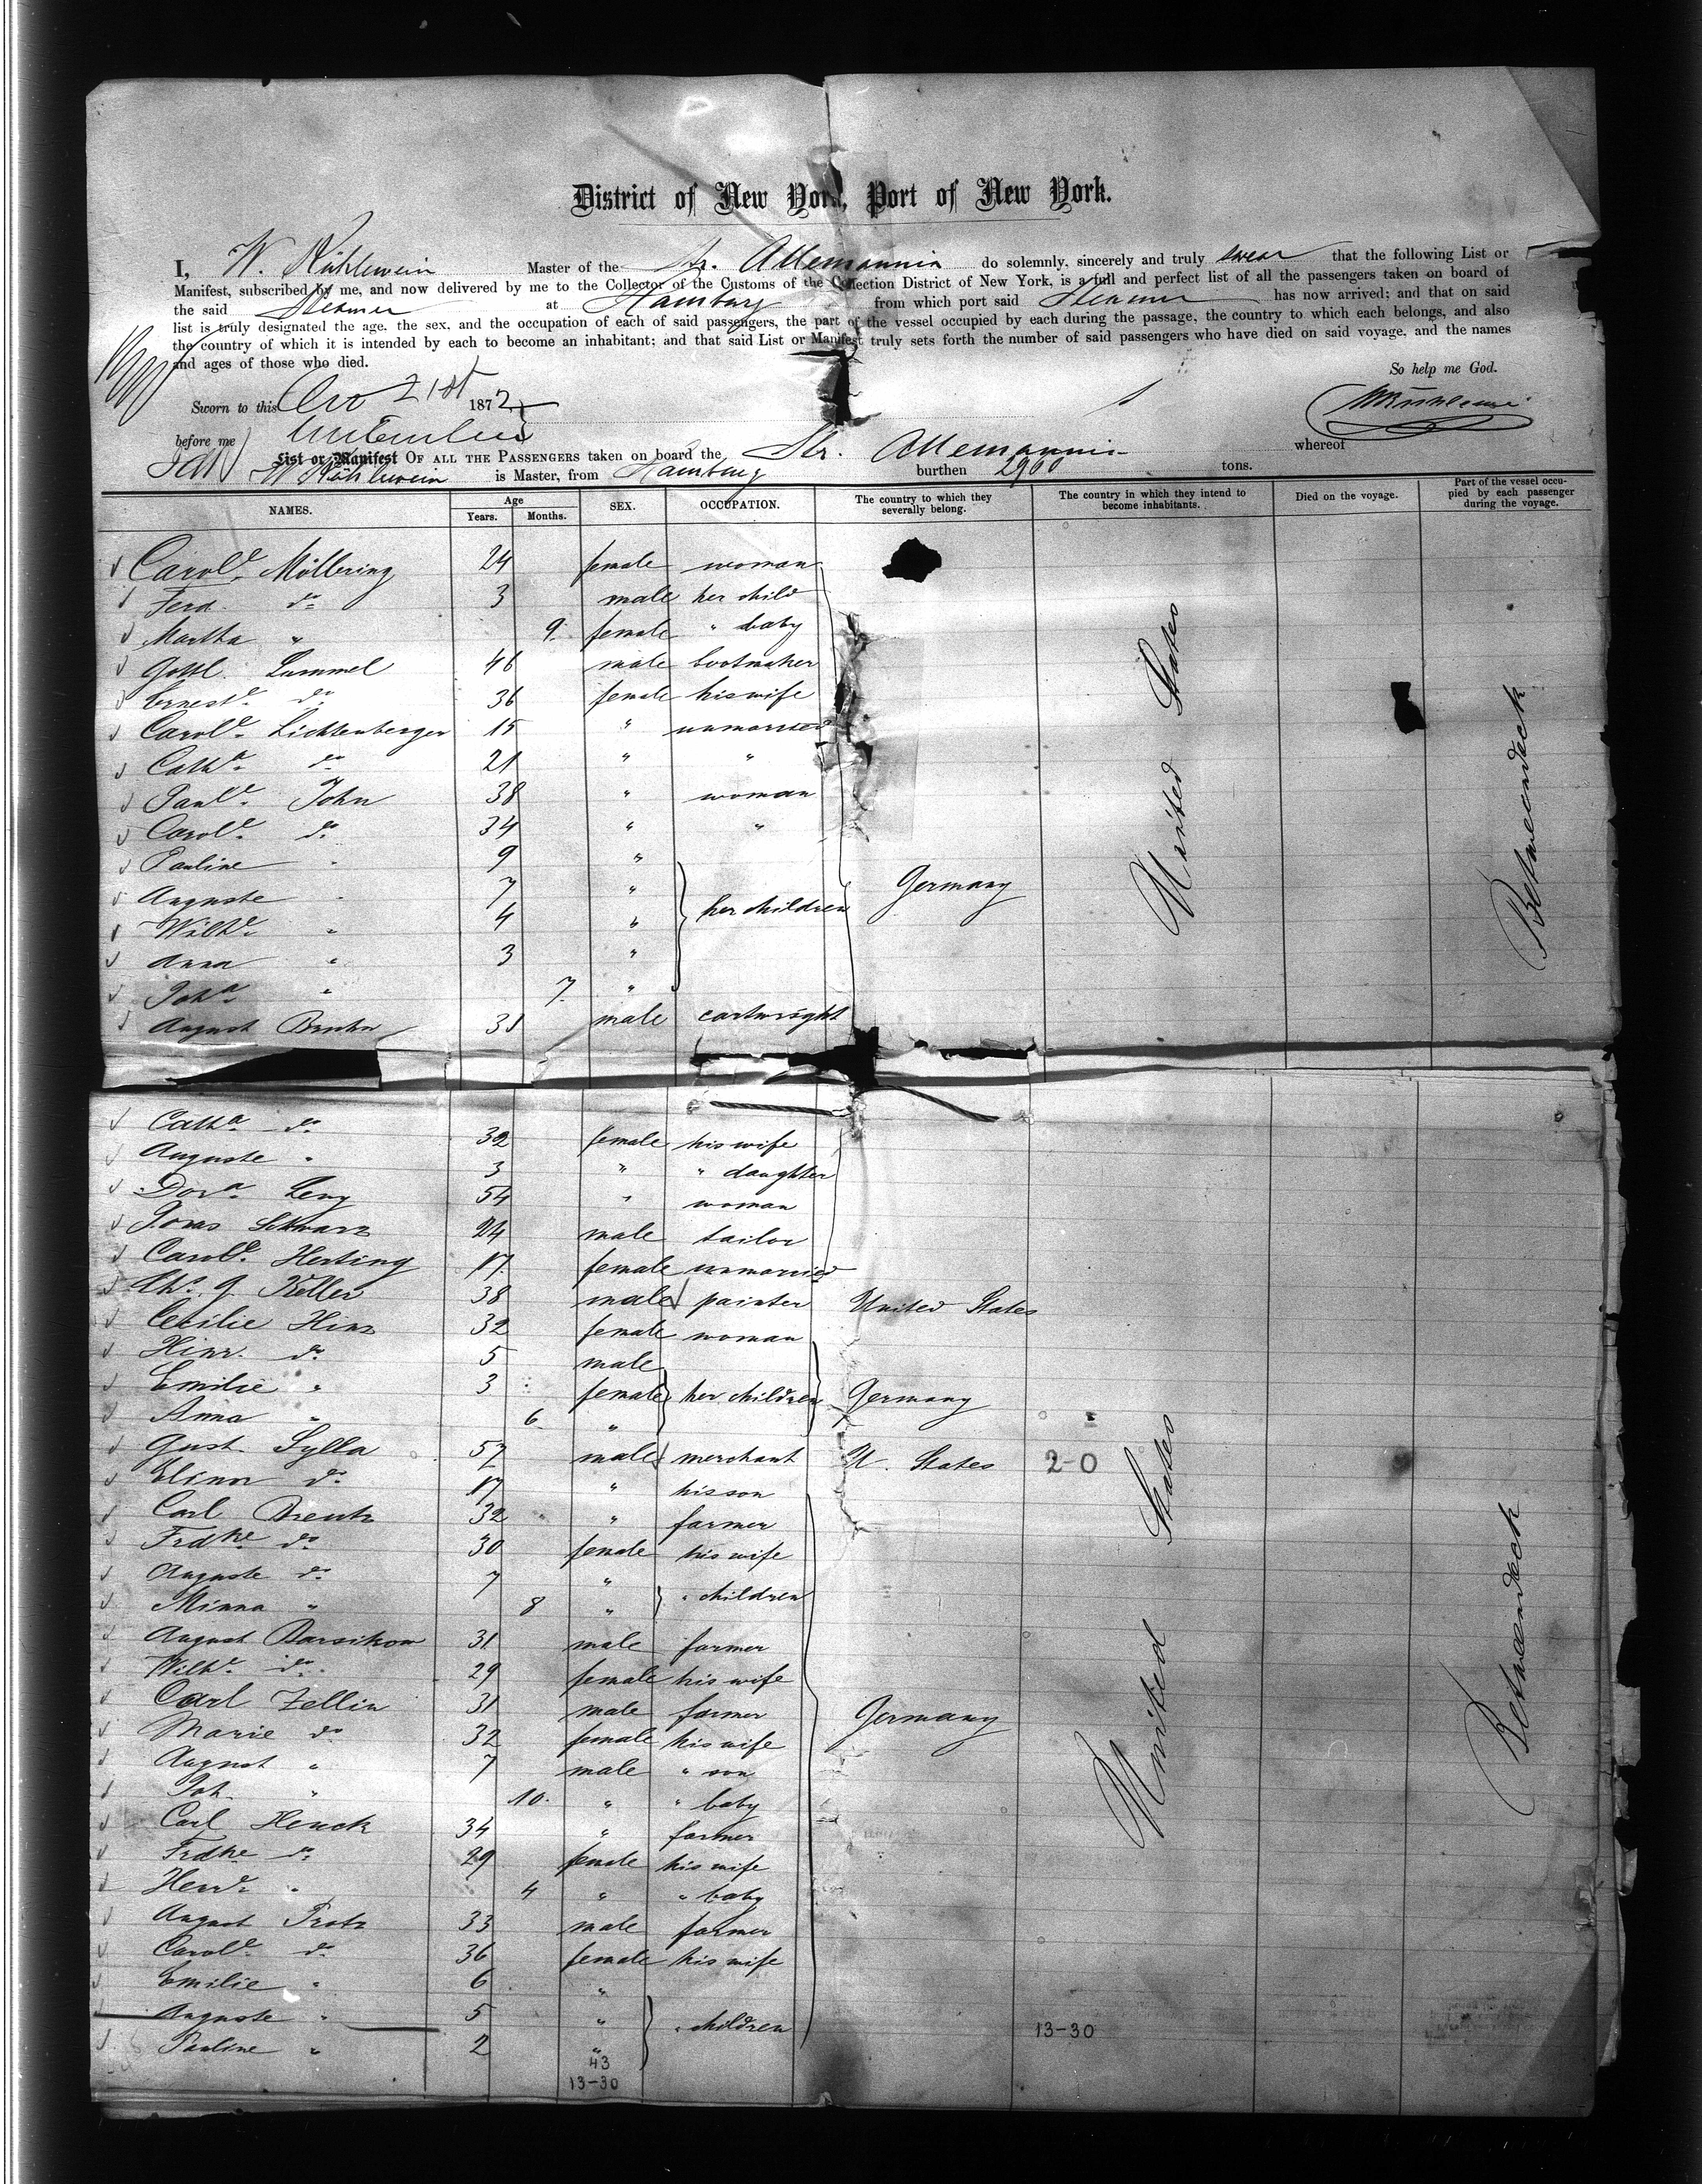 District of New York, Port of New York.
I, W. Kühlewein Master of the Str. Allemannia do solemnly, sincerely and truly swear that the following List or
Manifest, subscribed by me, and now delivered by me to the Collector of the Customs of the Collection District of New York, is a full and perfect list of all the passengers taken on board of
the said Steamer at Hamburg from which port said Steamer has now arrived; and that on said
list is truly designated the age, the sex, and the occupation of each of said passengers, the part of the vessel occupied by each during the passage, the country to which each belongs, and also
the country of which it is intended by each to become an inhabitant; and that said List or Manifest truly sets forth the number of said passengers who have died on said voyage, and the names
and ages of those who died.
So help me God.
Sworn to this 21st 1872
before me
List or Manifest OF ALL THE PASSENGERS taken on board the Str. Allemannia whereof
W Kühlewein is Master, from Hamburg burthen 2960 tons.
NAMES. Age Years. Months. SEX. OCCUPATION. The country to which they severally belong. The country in which they intend to become inhabitants. Died on the voyage. Part of the vessel occupied by each passenger during the voyage.
Carol.e Möllering 24 female woman
Ferd. do 3 male her child
Martha " 9 female " baby
Gottl. Lummel 46 male bootmaker
Ernest.e do 36 female his wife
Carol.e Lichtenberger 15 " unmarried
Cath.a do 21 " "
Paul.e John 38 " woman
Carol.e do 34 " "
Pauline " 9 "
Auguste " 7 "
Wilh.e " 4 " her children Germany United States Betweendeck
Anna " 3 "
Joh.a " 7 "
August 31 male cartwright
Cath.a do 32 female his wife
Auguste " 3 " " daughter
Dor.a Levy 54 " woman
Jonas Schwarz 24 male tailor
Carol.e Herting 17 female unmarried
Chr. G. Keller 38 male painter United States
Cecilie Hinz 32 female woman
Hinr. do 5 male
Emilie " 3 female her children Germany
Anna " 6 "
Gust. Sylla 57 male merchant U. States 2-0
do 17 " his son
Carl 32 " farmer
Frdke do 30 female his wife
Auguste do 7 " " children
Minna " 8 "
August Barsikow 31 male farmer
Wilh.e do 29 female his wife
Carl Zellin 31 male farmer Germany United States Betweendeck
Marie do 32 female his wife
August " 7 male " son
Joh. " 10 " " baby
Carl Henck 34 " farmer
Frdke do 29 female his wife
Henr.e " 4 " " baby
August Protz 33 male farmer
Carol.e do 36 female his wife
Emilie " 6 "
Auguste " 5 " " children 13-30
Pauline " 2 "
43
13-30